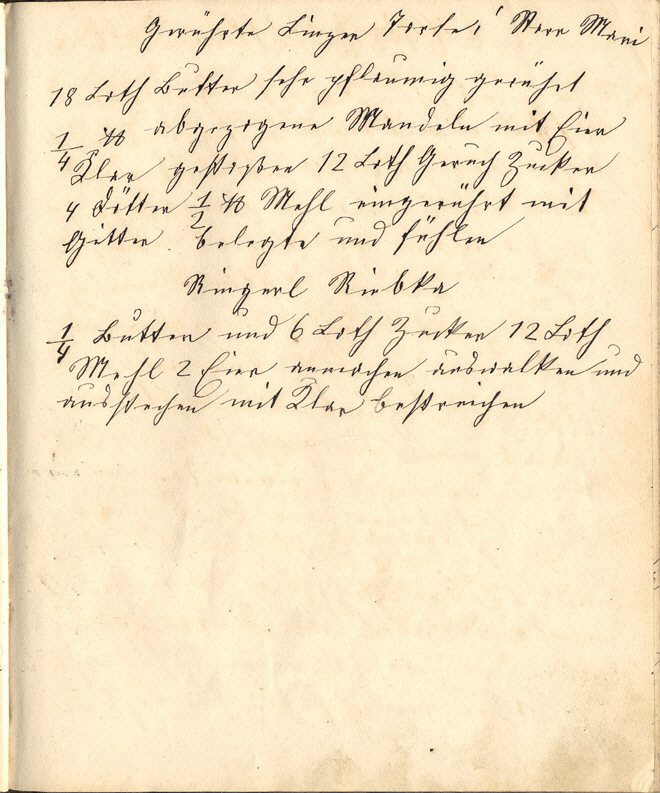 Gerührte Linzer Torte,
18 Loth Butter sehr pflaumig gerührt
1/4 ℔ abgezogene Mandeln mit Eier
Klar gestoßen 12 Loth Geruch Zucker
4 Dötter 1/2 ℔ Mehl eingerührt mit
Gitter belegte und füllen
Ringerl
1/4 Butter und 6 Loth Zucker 12 Loth
Mehl 2 Eier anmachen auswalken und
ausstechen mit Klar bestreichen